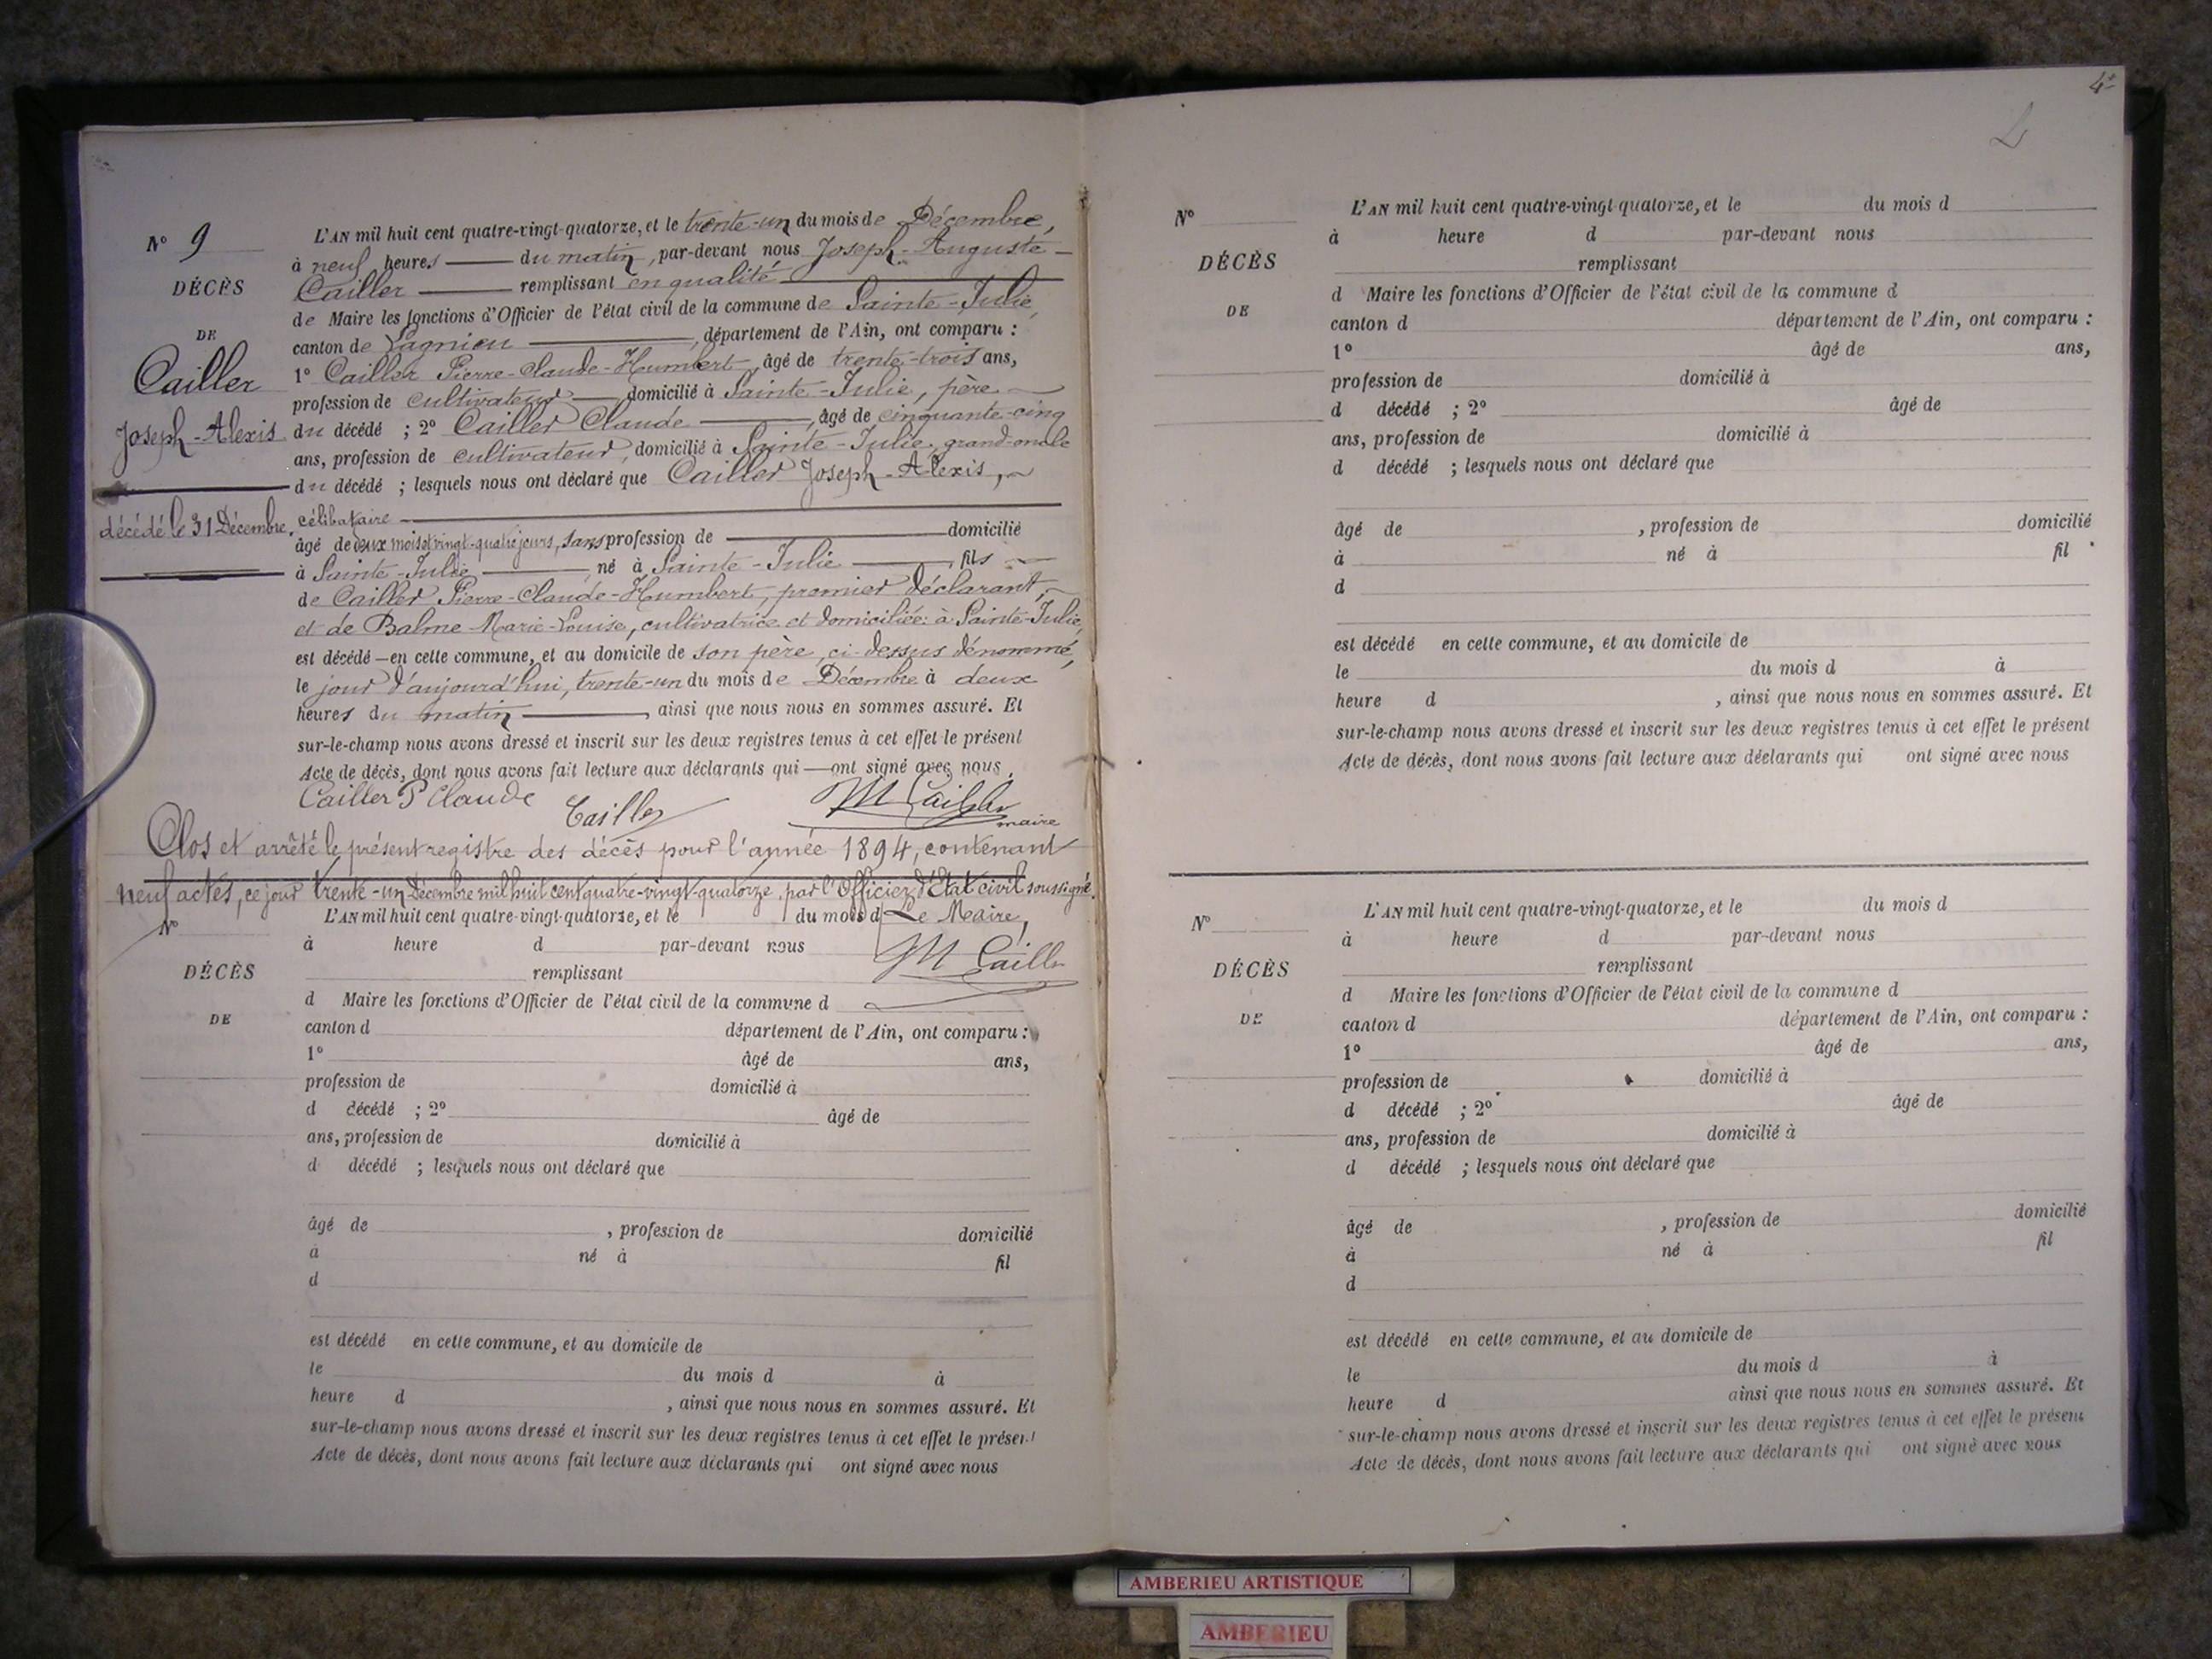 Nº 9
DÉCÈS
DE
Cailler
Joseph-Alexis
décédé le 31 Décembre.
L'AN mil huit cent quatre-vingt-quatorze, et le trente-un du mois de Décembre,
à neuf heures du matin, par-devant nous Joseph-Auguste
Cailler remplissant en qualité
de Maire les fonctions d'Officier de l'état civil de la commune de Sainte-Julie,
canton de Lagnieu, département de l'Ain, ont comparu :
1º Cailler Pierre-Claude-Humbert, âgé de trente-trois ans,
profession de cultivateur, domicilié à Sainte-Julie, père
du décédé ; 2º Cailler Claude, âgé de cinquante-cinq
ans, profession de cultivateur, domicilié à Sainte-Julie, grand-oncle
du décédé ; lesquels nous ont déclaré que Cailler Joseph-Alexis,
célibataire
âgé de deux mois et vingt-quatre jours, sans profession de domicilié
à Sainte-Julie, né à Sainte-Julie, fils
de Cailler Pierre-Claude-Humbert, premier déclarant,
et de Balme Marie-Louise, cultivatrice et domiciliée à Sainte-Julie,
est décédé en cette commune, et au domicile de son père, ci-dessus dénommé,
le jour d'aujourd'hui, trente-un du mois de Décembre à deux
heures du matin, ainsi que nous nous en sommes assuré. Et
sur-le-champ nous avons dressé et inscrit sur les deux registres tenus à cet effet le présent
Acte de décès, dont nous avons fait lecture aux déclarants qui ont signé avec nous.
Cailler P Claude Cailler M Cailler
maire
Clos et arrêté le présent registre des décès pour l'année 1894, contenant
neuf actes, ce jour trente-un Décembre mil huit cent quatre-vingt-quatorze, par l'Officier d'Etat civil soussigné.
Le Maire,
M Cailler
Nº
DÉCÈS
DE
L'AN mil huit cent quatre-vingt-quatorze, et le du mois d
à heure d par-devant nous
remplissant
d Maire les fonctions d'Officier de l'état civil de la commune d
canton d département de l'Ain, ont comparu :
1º âgé de ans,
profession de domicilié à
d décédé ; 2º âgé de
ans, profession de domicilié à
d décédé ; lesquels nous ont déclaré que
âgé de , profession de domicilié
à né à fil
d
est décédé en cette commune, et au domicile de
le du mois d à
heure d , ainsi que nous nous en sommes assuré. Et
sur-le-champ nous avons dressé et inscrit sur les deux registres tenus à cet effet le présent
Acte de décès, dont nous avons fait lecture aux déclarants qui ont signé avec nous
4
Nº
DÉCÈS
DE
L'AN mil huit cent quatre-vingt-quatorze, et le du mois d
à heure d par-devant nous
remplissant
d Maire les fonctions d'Officier de l'état civil de la commune d
canton d département de l'Ain, ont comparu :
1º âgé de ans,
profession de domicilié à
d décédé ; 2º âgé de
ans, profession de domicilié à
d décédé ; lesquels nous ont déclaré que
âgé de , profession de domicilié
à né à fil
d
est décédé en cette commune, et au domicile de
le du mois d à
heure d , ainsi que nous nous en sommes assuré. Et
sur-le-champ nous avons dressé et inscrit sur les deux registres tenus à cet effet le présent
Acte de décès, dont nous avons fait lecture aux déclarants qui ont signé avec nous
Nº
DÉCÈS
DE
L'AN mil huit cent quatre-vingt-quatorze, et le du mois d
à heure d par-devant nous
remplissant
d Maire les fonctions d'Officier de l'état civil de la commune d
canton d département de l'Ain, ont comparu :
1º âgé de ans,
profession de domicilié à
d décédé ; 2º âgé de
ans, profession de domicilié à
d décédé ; lesquels nous ont déclaré que
âgé de , profession de domicilié
à né à fil
d
est décédé en cette commune, et au domicile de
le du mois d à
heure d ainsi que nous nous en sommes assuré. Et
sur-le-champ nous avons dressé et inscrit sur les deux registres tenus à cet effet le présent
Acte de décès, dont nous avons fait lecture aux déclarants qui ont signé avec nous
AMBERIEU ARTISTIQUE
AMBERIEU